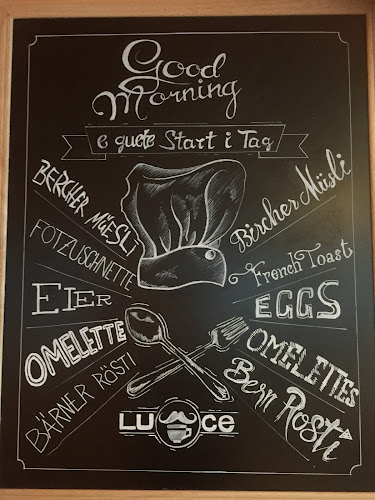 Good
Morning
e guete Start i Tag
BERCHER MÜESLI
FOTZUSCHNETTE
EIER
OMELETTE
BÄRNER RÖSTI
Bircher Müsli
French Toast
EGGS
OMELETTES
Bern Rösti
LU CE